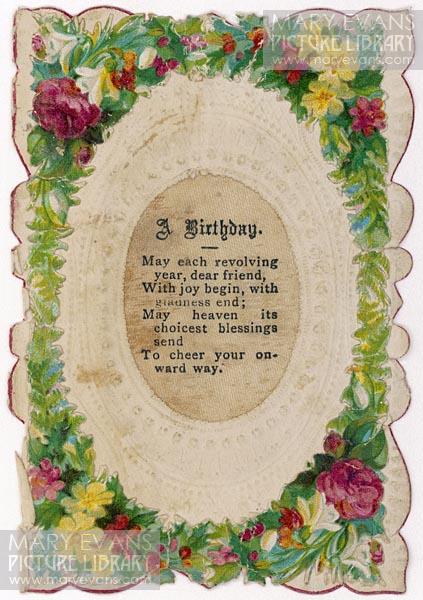 MARY EVANS
PICTURE LIBRARY
www.maryevans.com
A Birthday.
May each revolving
year, dear friend,
With joy begin, with
gladness end;
May heaven its
choicest blessings
send
To cheer your on-
ward way.
MARY EVANS
PICTURE LIBRARY
www.maryevans.com
MARY EVANS
PICTURE LIBRARY
www.maryevans.com